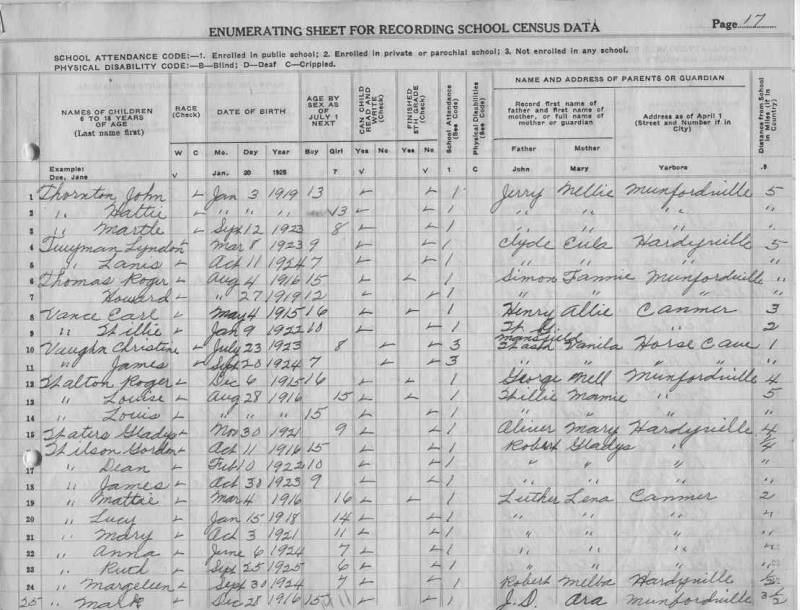 ENUMERATING SHEET FOR RECORDING SCHOOL CENSUS DATA Page 17
SCHOOL ATTENDANCE CODE:—1. Enrolled in public school; 2. Enrolled in private or parochial school; 3. Not enrolled in any school.
PHYSICAL DISABILITY CODE:—B—Blind; D—Deaf C—Crippled.
NAMES OF CHILDREN 6 TO 18 YEARS OF AGE (Last name first) RACE (Check) DATE OF BIRTH AGE BY SEX AS OF JULY 1 NEXT CAN CHILD READ AND WRITE (Check) FINISHED 8TH GRADE (Check) School Attendance (See Code) Physical Disabilities (See Code) NAME AND ADDRESS OF PARENTS OR GUARDIAN Distance from School in Miles (if in Country)
Record first name of father and first name of mother, or full name of mother or guardian Address as of April 1 (Street and Number if in City)
W C Mo. Day Year Boy Girl Yes No Yes No Father Mother
Example: Doe, Jane V Jan. 20 1925 7 V V 1 C John Mary Yarboro .5
1 Thornton John Jan 3 1919 13 1 Jerry Nellie Munfordville 5
2 " Hattie " " " 13 1 " " " "
3 " Martle Sept 12 1923 8 1 " " " "
4 Twyman Lyndon Mar 8 1923 9 1 Clyde Eula Hardyville 5
5 " Lanis Oct 11 1924 7 1 " " " "
6 Thomas Roger Aug 4 1916 15 1 Simon Fannie Munfordville "
7 Howard " 27 1919 12 1 " " "
8 Vance Earl May 4 1915 16 1 Henry Allie Canmer 3
9 " Willie Jan 9 1922 10 1 " 2
10 Vaughn Christine July 23 1923 8 3 Mansfield Vanila Horse Cave 1
11 " James Sept 20 1924 7 3 " " " "
12 Walton Roger Dec 6 1915 16 1 George Nell Munfordville 4
13 " Louise Aug 28 1916 15 1 Willie Mamie " 5
14 " Louis " " " 15 1 " " " "
15 Waters Gladys Nov 30 1921 9 1 Oliver Mary Hardyville 4
Wilson Gordon Oct 11 1916 15 1 Robert Gladys "
17 " Dean Feb 10 1922 10 1 " " "
18 " James Oct 30 1923 9 1 " " " "
19 " Mattie Mar 4 1916 16 1 Luther Lena Canmer 2
20 " Lucy Jan 15 1918 14 1 " " " "
21 " Mary Oct 3 1921 11 1 " " " "
22 " Anna June 6 1924 7 1 " " " "
23 " Ruth Sept 25 1925 6 1 " " " "
24 " Margeleen Sept 30 1924 7 1 Robert Melba Hardyville
25 " Mark Dec 28 1916 15 1 J.D. Ara Munfordville 3 1/2